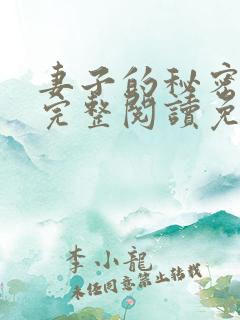 妻子的秘密
完整閱讀免
李小龍
未经同意禁止转载